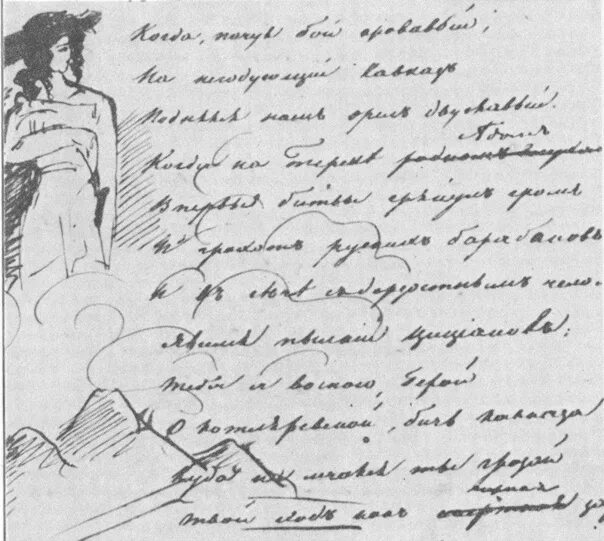 Когда, почуя бой кровавый,
На негодующій Кавказъ
Поднялся нашъ орелъ двуглавый.
Когда на Терекѣ
Впервые битвы грянулъ громъ
И грохотъ русскихъ барабановъ
И въ сѣчѣ съ дерзостнымъ чело
Явился пылкій Циціановъ;
Тебя я воспою, Герой
О Котляревской, бичь Кавказа
Куда ни мчался ты грозой
Твой ходъ какъ